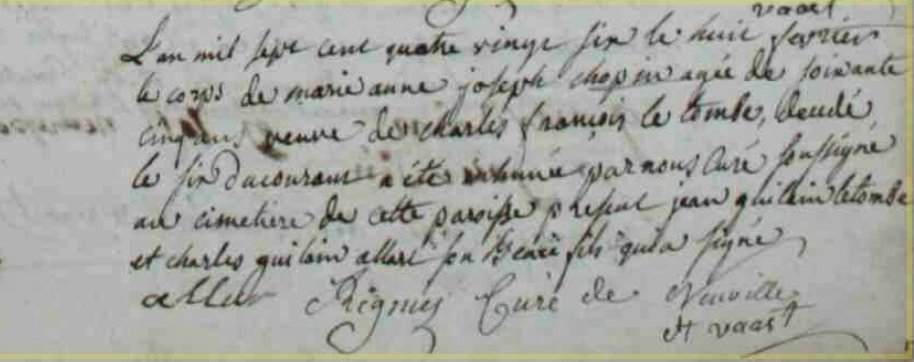 vaast
L'an mil sept cent quatre vingt six le huit fevrier
le corps de marie anne joseph chopin agée de soixante
cinq ans veuve de charles françois le tombe, decedé
le six du courant a été inhumée par nous curé soussigné
au cimetiere de cette paroisse present jean guilain letombe
et charles guilain allart son fils qui a signé
Curé de Neuville
st vaast